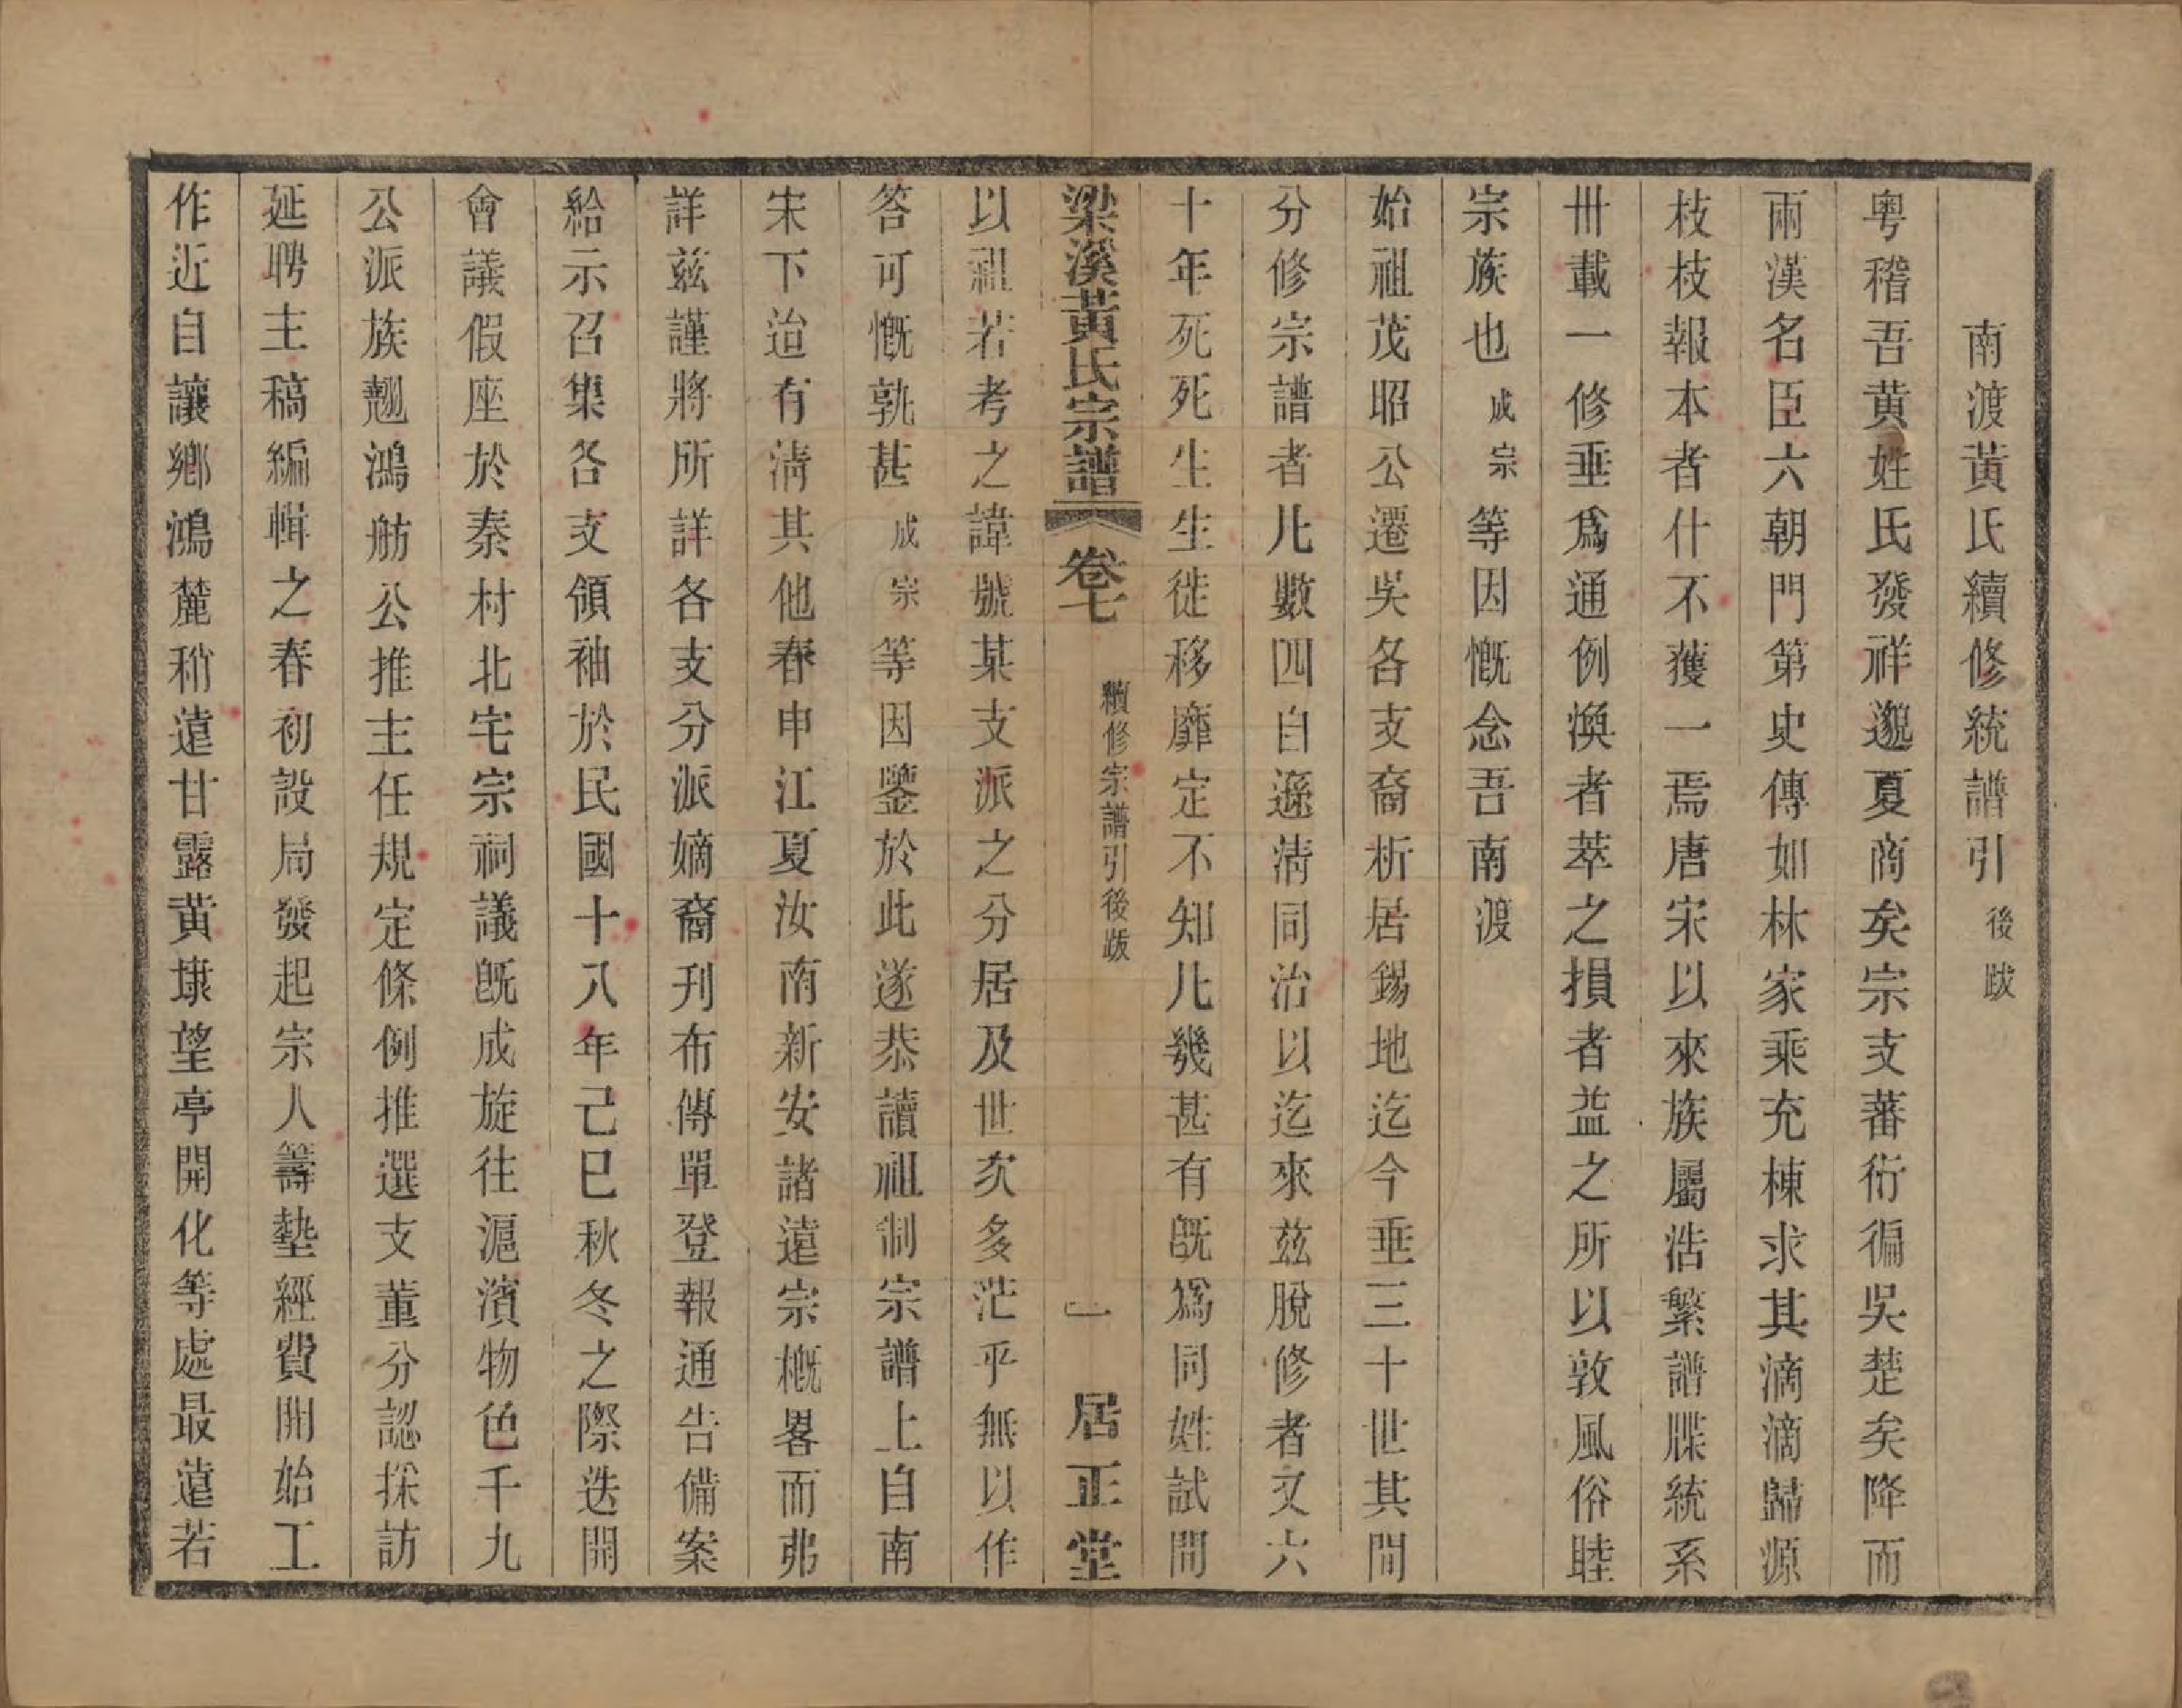 南渡黃氏續修統譜引後跋
粵稽吾黃姓氏發祥邈夏商矣宗支蕃衍徧吳楚矣降而
兩漢名臣六朝門第史傳如林家乘充棟求其滴滴歸源
枝枝報本者什不獲一焉唐宋以來族屬浩繁譜牒統系
卅載一修垂爲通例渙者萃之損者益之所以敦風俗睦
宗族也成宗等因慨念吾南渡
始祖茂昭公遷吳各支裔析居錫地迄今垂三十世其間
分修宗譜者凡數四自遜清同治以迄來茲脫修者又六
十年死死生生徙移靡定不知凡幾甚有旣爲同姓試問
梁溪黃氏宗譜 卷七 續修宗譜引後跋 一 居正堂
以祖若考之諱號某支派之分居及世次多茫乎無以作
答可慨孰甚成宗等因鑒於此遂恭讀祖制宗譜上自南
宋下迨有淸其他春申江夏汝南新安諸遠宗概畧而弗
詳茲謹將所詳各支分派嫡裔刊布傳單登報通告備案
給示召集各支領袖於民國十八年己巳秋冬之際迭開
會議假座於秦村北宅宗祠議旣成旋往滬濱物色千九
公派族翹鴻舫公推主任規定條例推選支董分認採訪
延聘主稿編輯之春初設局發起宗人籌墊經費開始工
作近自讓鄉鴻麓稍遠甘露黃埭望亭開化等處最遠若